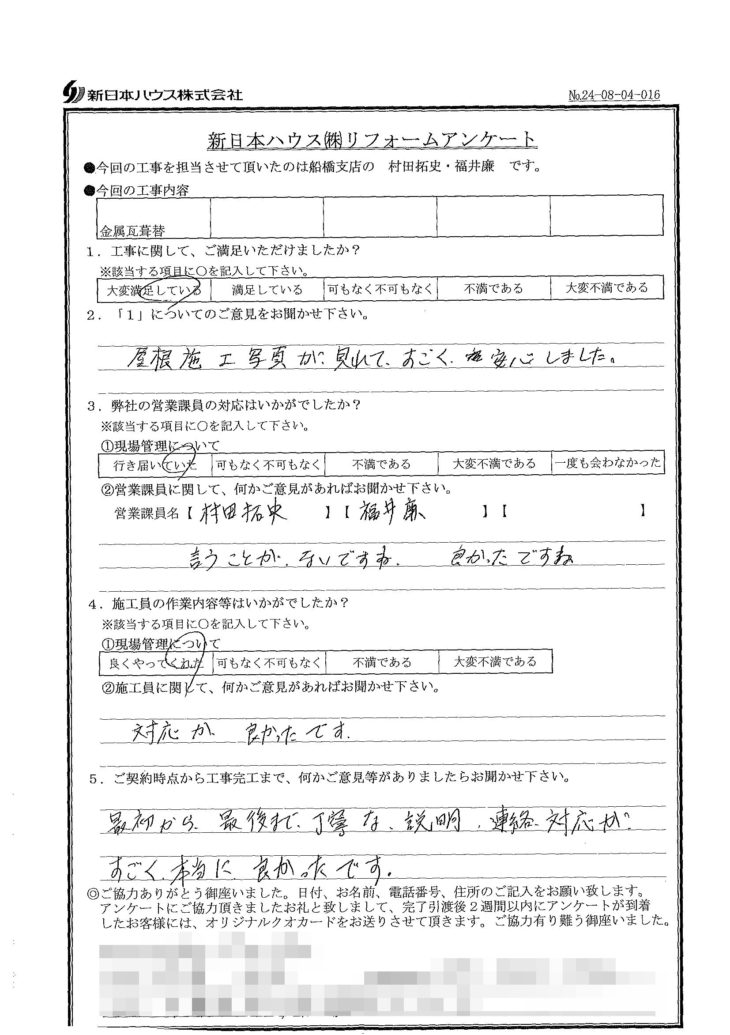 新日本ハウス株式会社
No.24-08-04-016
新日本ハウス㈱リフォームアンケート
●今回の工事を担当させて頂いたのは船橋支店の 村田拓史・福井廉 です。
●今回の工事内容
金属瓦葺替
1．工事に関して、ご満足いただけましたか？
※該当する項目に〇を記入して下さい。
大変満足している 満足している 可もなく不可もなく 不満である 大変不満である
2．「1」についてのご意見をお聞かせ下さい。
屋根施工写真が、見れて、すごく、安心しました。
3．弊社の営業課員の対応はいかがでしたか？
※該当する項目に〇を記入して下さい。
①現場管理について
行き届いていた 可もなく不可もなく 不満である 大変不満である 一度も会わなかった
②営業課員に関して、何かご意見があればお聞かせ下さい。
営業課員名【村田拓史 】【福井廉 】【 】
言うことが、ないですね。 良かったですね
4．施工員の作業内容等はいかがでしたか？
※該当する項目に〇を記入して下さい。
①現場管理について
良くやってくれた 可もなく不可もなく 不満である 大変不満である
②施工員に関して、何かご意見があればお聞かせ下さい。
対応が 良かったです.
5．ご契約時点から工事完工まで、何かご意見等がありましたらお聞かせ下さい。
最初から、最後まで、丁寧な、説明、連絡、対応が
すごく、本当に 良かったです。
◎ご協力ありがとう御座いました。日付、お名前、電話番号、住所のご記入をお願い致します。
アンケートにご協力頂きましたお礼と致しまして、完了引渡後2週間以内にアンケートが到着
したお客様には、オリジナルクオカードをお送りさせて頂きます。ご協力有り難う御座いました。